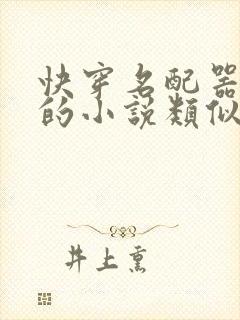 快穿名配器
的小說類似
井上熏